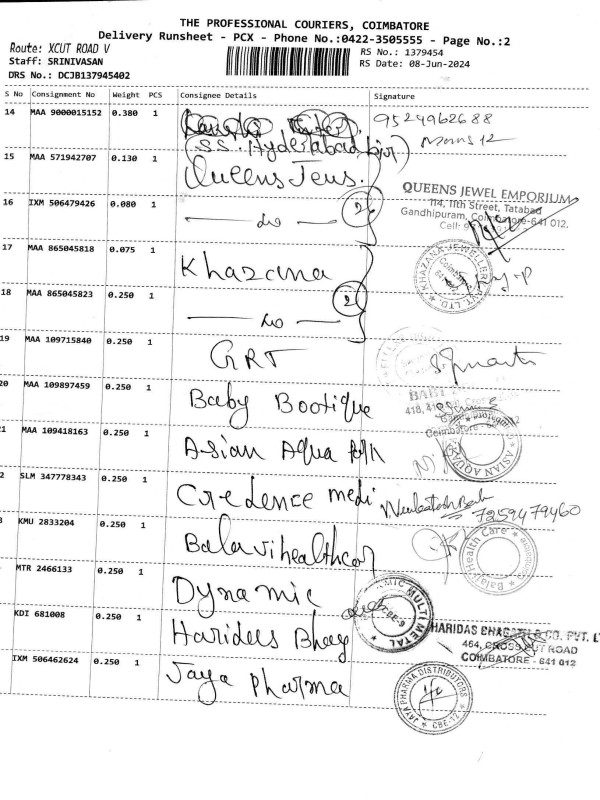 THE PROFESSIONAL COURIERS, COIMBATORE
Delivery Runsheet - PCX - Phone No.:0422-3505555 - Page No.:2
Route: XCUT ROAD V
RS No.: 1379454
Staff: SRINIVASAN
RS Date: 08-Jun-2024
DRS No.: DCJB137945402
S No Consignment No Weight PCS Consignee Details Signature
14 MAA 9000015152 0.380 1 9524962688
(S.S. Hyderabad
15 MAA 571942707 0.130 1 Queens Jews.
QUEENS JEWEL EMPORIUM
114, 11th Street, Tatabad
Gandhipuram, Coimbatore-641 012.
Cell:
16 IXM 506479426 0.080 1 — do — 2
17 MAA 865045818 0.075 1 Khazana
KHAZANA JEWELLERY PVT. LTD.
18 MAA 865045823 0.250 1 — do — 2
19 MAA 109715840 0.250 1 GRT
20 MAA 109897459 0.250 1 Baby Bootique
BABY
418,
Coimbatore
1 MAA 109418163 0.250 1 Asian Aqua
ASIAN AQUA
2 SLM 347778343 0.250 1 Credence medi
7259479460
3 KMU 2833204 0.250 1 Balavihealthcar
Balavi Health Care
MTR 2466133 0.250 1 Dynamic
DYNAMIC MULTI METAL
KDI 681008 0.250 1 Haridas Bhag
HARIDAS BHAGATH & CO. PVT. L
464, CROSS CUT ROAD
COIMBATORE - 641 012
IXM 506462624 0.250 1 Jaya Pharma
JAYA PHARMA DISTRIBUTORS
CBE-12